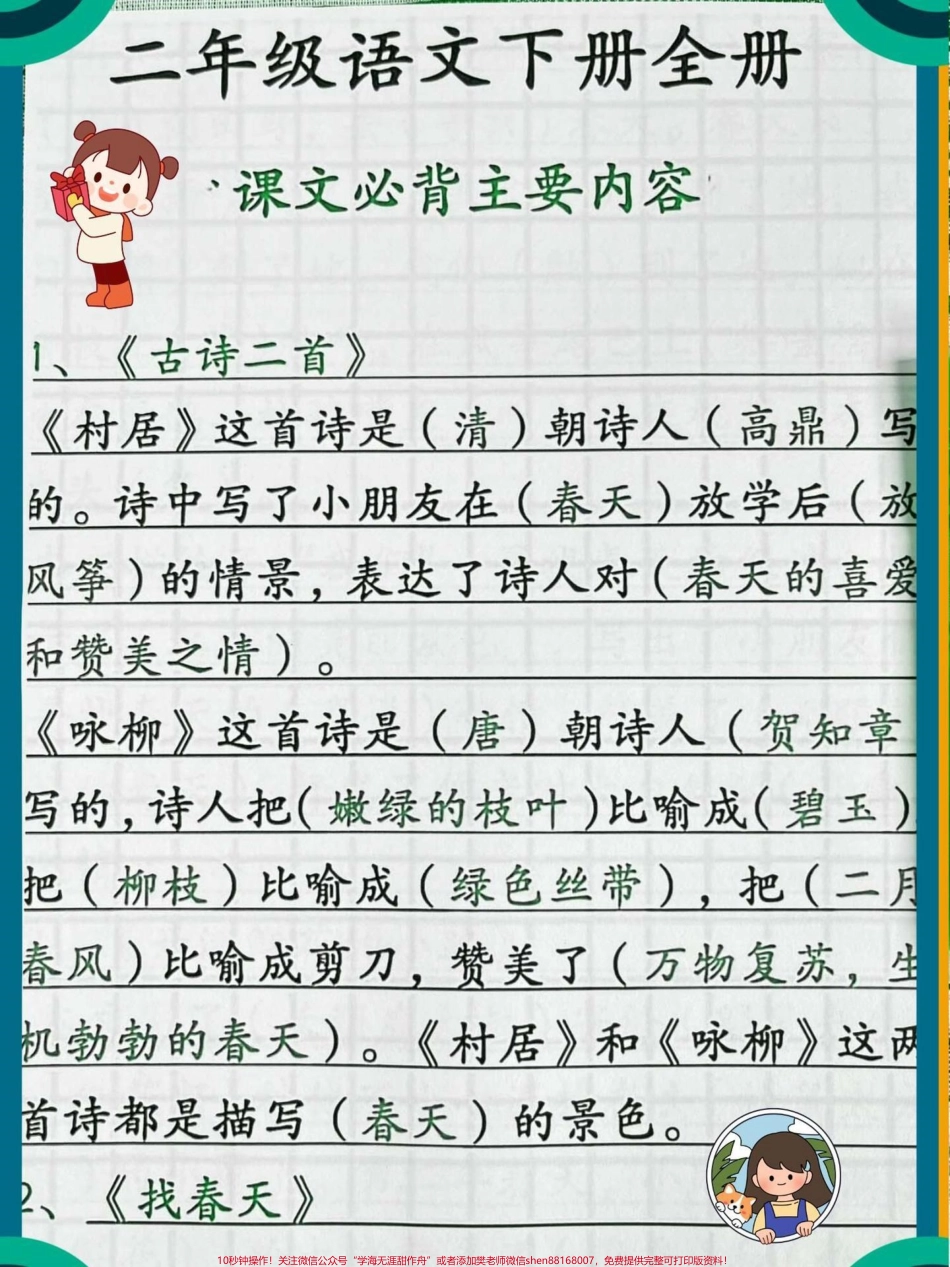 二年级语文下册全册
课文必背主要内容
1、《古诗二首》
《村居》这首诗是（清）朝诗人（高鼎）写
的。诗中写了小朋友在（春天）放学后（放
风筝）的情景，表达了诗人对（春天的喜爱
和赞美之情）。
《咏柳》这首诗是（唐）朝诗人（贺知章
写的，诗人把(嫩绿的枝叶)比喻成(碧玉)
把（柳枝）比喻成（绿色丝带），把（二月
春风）比喻成剪刀，赞美了（万物复苏，生
机勃勃的春天）。《村居》和《咏柳》这两
首诗都是描写（春天）的景色。
2、《找春天》
10秒钟操作！关注微信公众号“学海无涯甜作舟”或者添加樊老师微信shen88168007，免费提供完整可打印版资料！